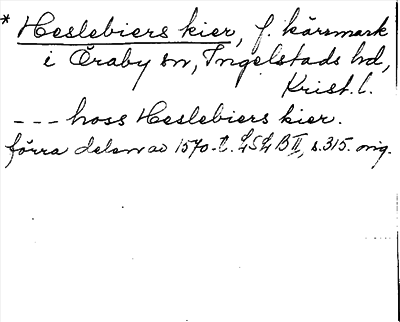 * Heslebiers kier, f. kärsmark
i Öraby sn, Ingelstads hd,
Krist. l.
--- hoss Heslebiers kier.
förra delen av 1570-t. LSL B II, s. 315. orig.